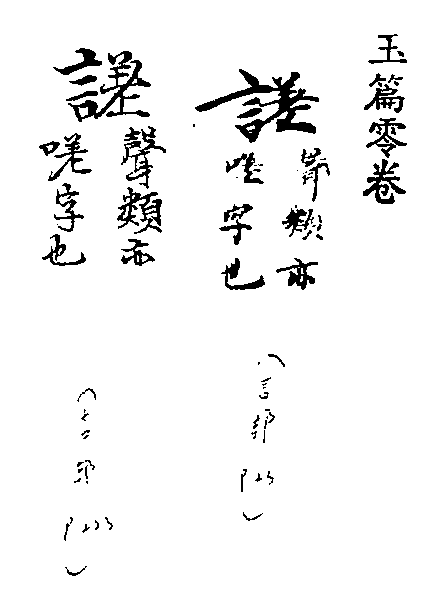 玉篇零卷
𧪘
聲類亦
嗟字也
（言部
𧪘
聲類亦
嗟字也
（言部